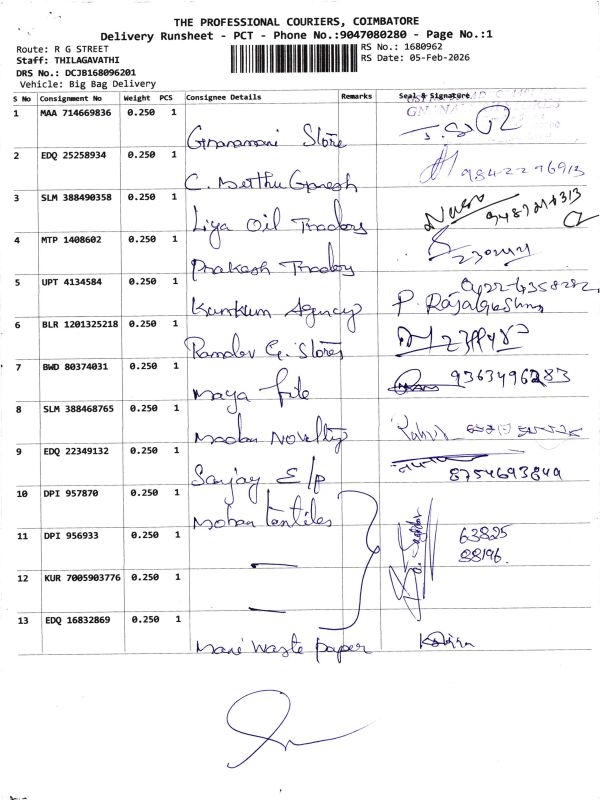 THE PROFESSIONAL COURIERS, COIMBATORE
Delivery Runsheet - PCT - Phone No.:9047080280 - Page No.:1
Route: R G STREET
RS No.: 1680962
Staff: THILAGAVATHI
RS Date: 05-Feb-2026
DRS No.: DCJB168096201
Vehicle: Big Bag Delivery
S No Consignment No Weight PCS Consignee Details Remarks Seal & Signature
1 MAA 714669836 0.250 1
Gnanamani Store
2 EDQ 25258934 0.250 1
C. Ganesh 9842276913
3 SLM 388490358 0.250 1
Liya Oil Traders
4 MTP 1408602 0.250 1
Prakash Traders
5 UPT 4134584 0.250 1
Kumkum Agency
6 BLR 1201325218 0.250 1
Ramdev G. Stores
7 BWD 80374031 0.250 1
Maya 9363496283
8 SLM 388468765 0.250 1
Madan Novelty
9 EDQ 22349132 0.250 1
Sanjay E/P 8754693849
10 DPI 957870 0.250 1
Mohan Textiles
11 DPI 956933 0.250 1
63825
88196
12 KUR 7005903776 0.250 1
13 EDQ 16832869 0.250 1
Mani Waste paper